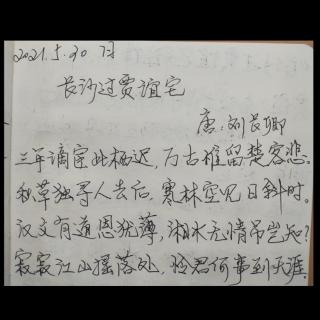 2021.5.30
长沙过贾谊宅
唐:刘长卿
三年谪宦此栖迟,万古惟留楚客悲。
秋草独寻人去后,寒林空见日斜时。
汉文有道恩犹薄,湘水无情吊岂知?
寂寂江山摇落处,怜君何事到天涯。